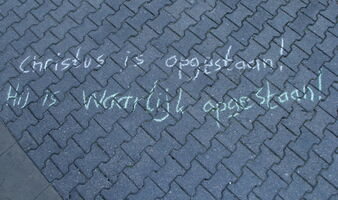 Christus is opgestaan!
Hij is waarlijk opgestaan!